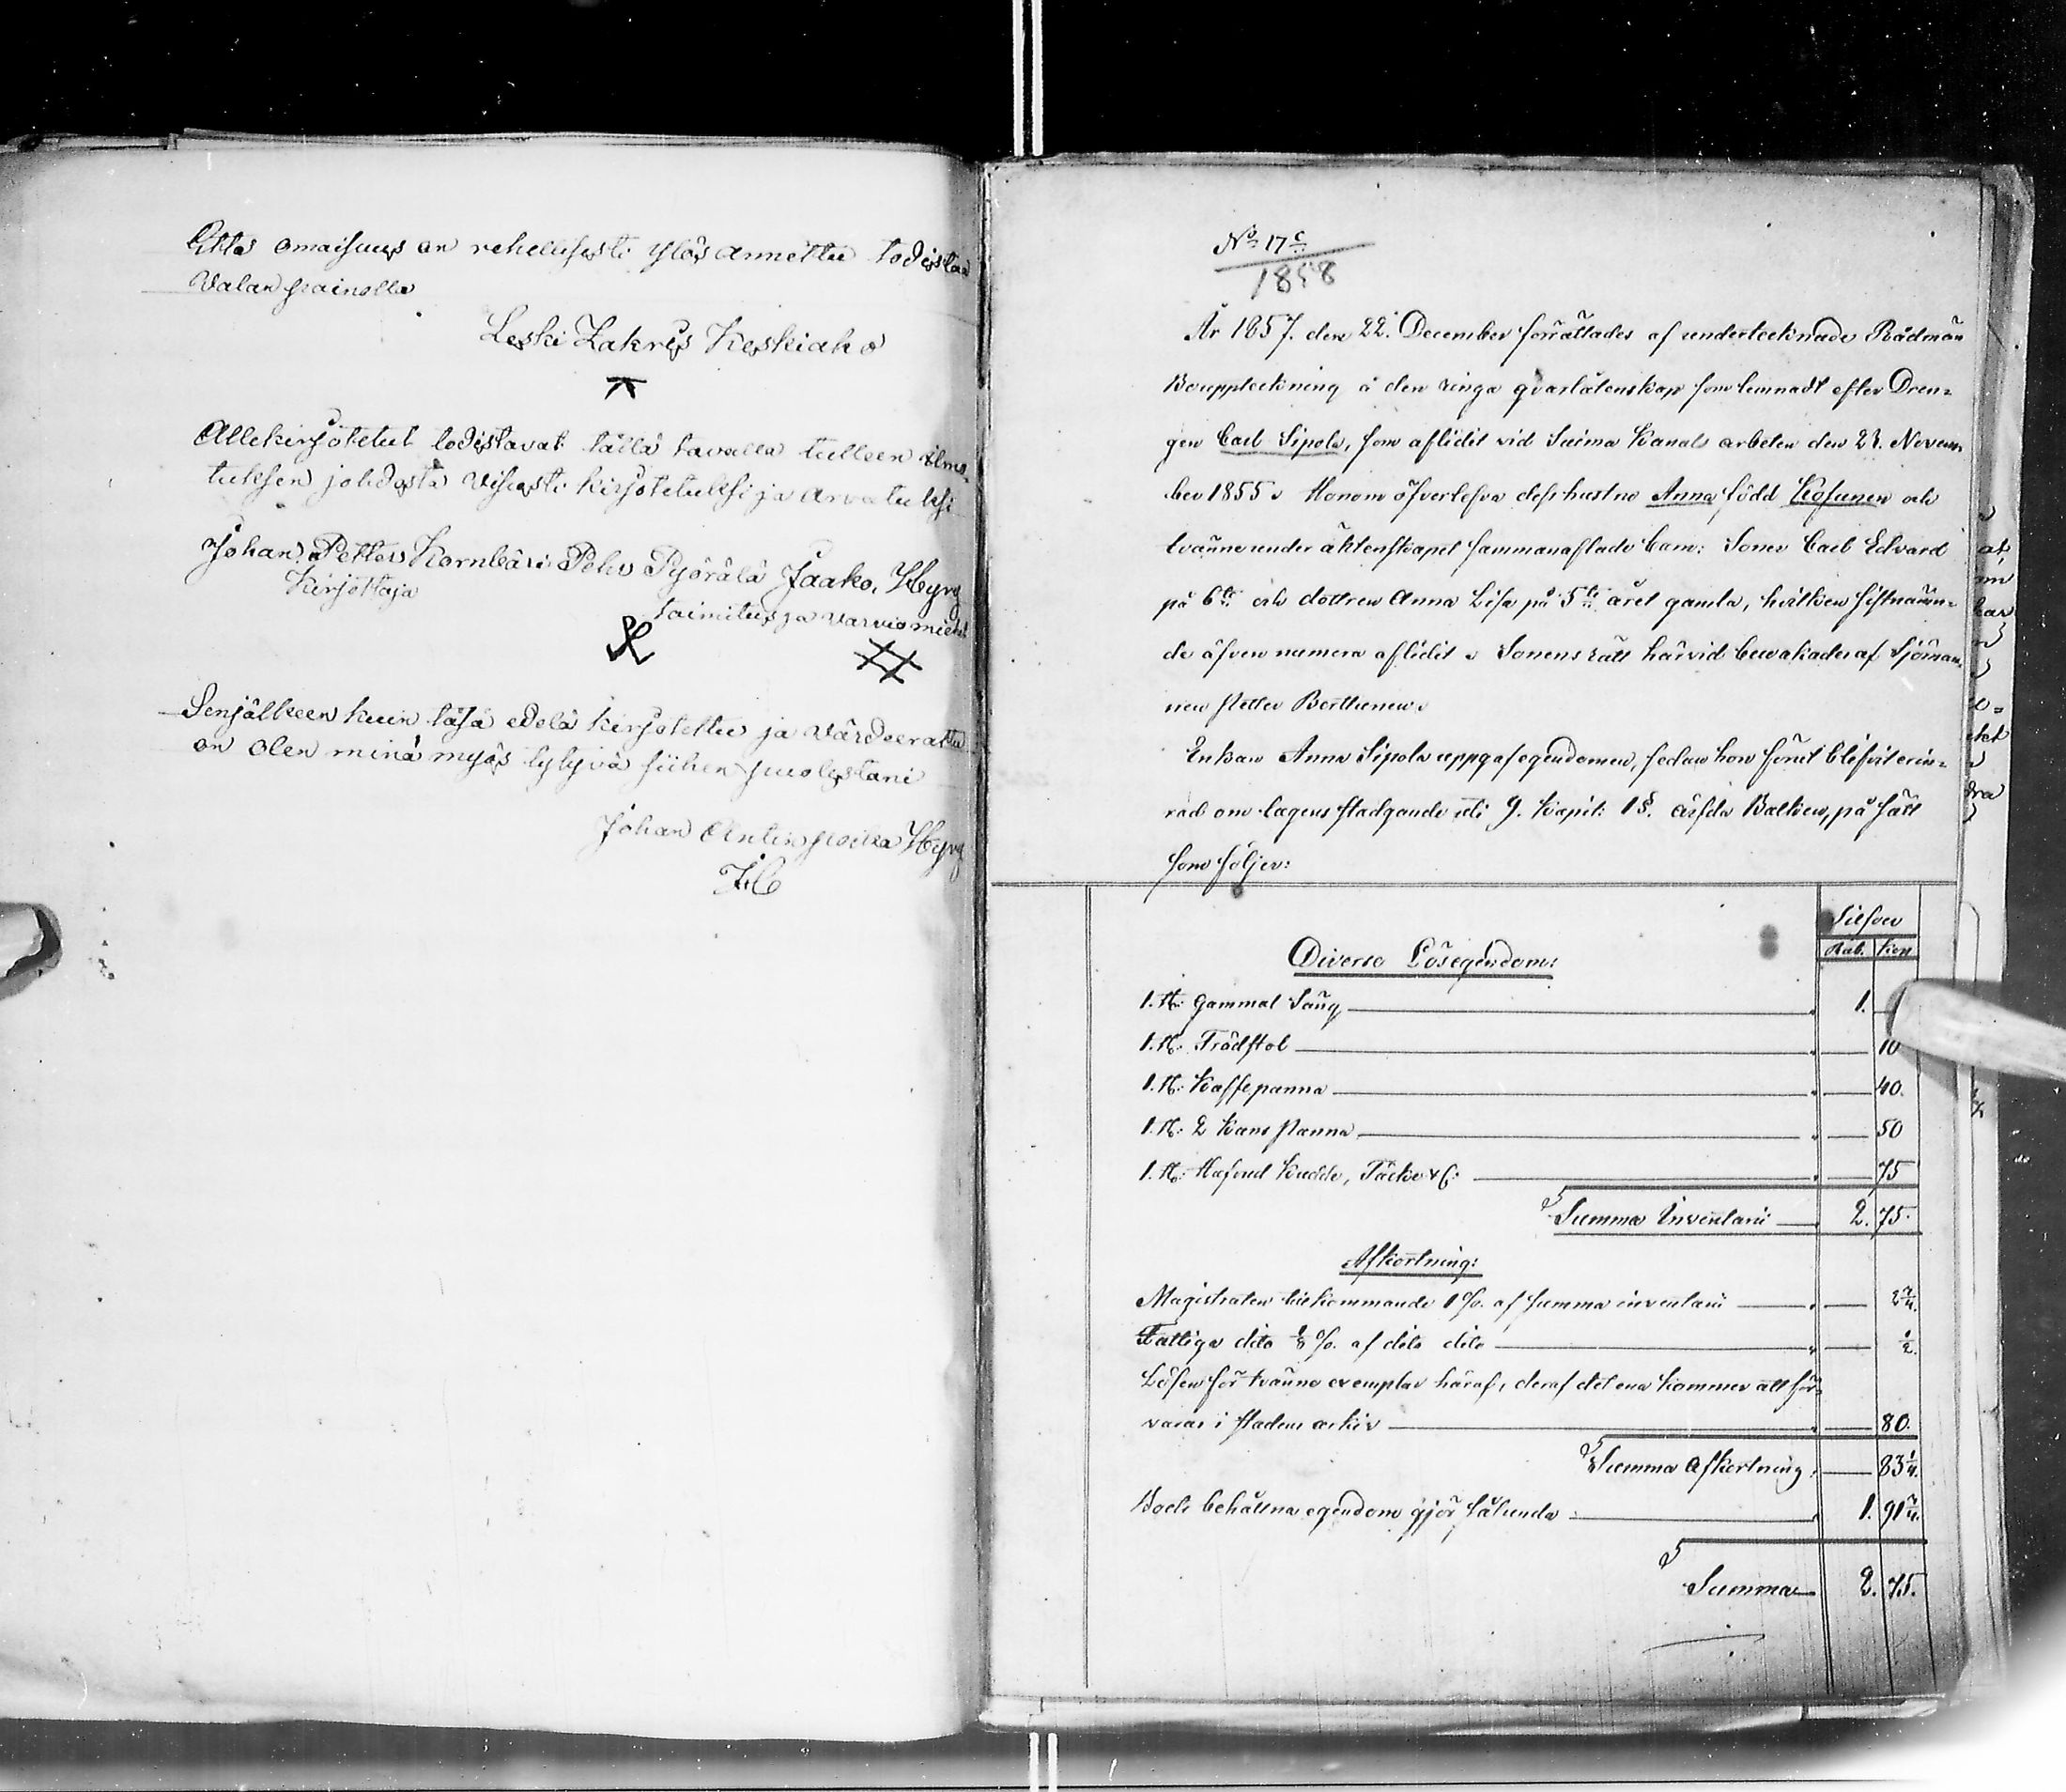 Että omaisuus on rehellisesti ylös annettu todistaa
Valan painolla
Leski Zakris Keskiaho
Allekirjotetut todistavat tällä tavalla tulleen ilmo-
tuksen johdosta visusti kirjotetuksi ja arvatuksi
Johan Petter Kornbäri Pehr Pyörälä Jaako, Hyry
Kirjottaja
taimitus ja varvio miehet
Senjälkeen kuin täsä edelä kirjotettu ja värdeerattu
on olen minä myös tytyvä siihen puolestani
Johan Antinpoika Hyry
JH
No 17 c
1858
År 1857. den 22. December förrättades af undertecknade Rådmän
Bouppteckning å den ringa qvarlåtenskap som lemnadt efter Dren-
gen Carl Sipola, som aflidit vid Saima Kanals arbeten den 23. Novem-
ber 1855. Honom öfverlefva dess hustru Anna född Kosunen och
tvänne under äktenskapet sammanaflade barn: Sonen Carl Edvard
på 6te och dottren Anna Lisa på 5te året gamla, hvilken sistnämn-
de äfven numera aflidit. Sonens rätt härvid bewakades af Sjöman-
nen Petter Berttunen.
Enkan Anna Sipola uppgaf egendomen, sedan hon förut blifvit erin-
rad om lagens stadgande uti 9. Kapit: 1 §. Ärfda Balken, på sätt
som följer:
Silfver
Rub. Kop
Diverse Lösegendom:
1. st: gammal Säng 1. —
1. st: Trädstol 10
1. st: Kaffepanna 40.
1. st: 2 Kans Panna 50
1. st: Hufvud Kudde, Täcke &c: 75
Summa Inventarii 2. 75.
Afkortning:
Magistraten tillkommande 1 %. af summa inventarii 2 3/4.
Fattiga dito 1/8 %. af dito dito 1/2.
Lösen för tvänne exemplar häraf, deraf det ena kommer att för-
varas i stadens arkiv 80.
Summa Afkortning 83 1/4.
Boets behållna egendom gjör sålunda 1. 91 3/4.
Summa 2. 75.